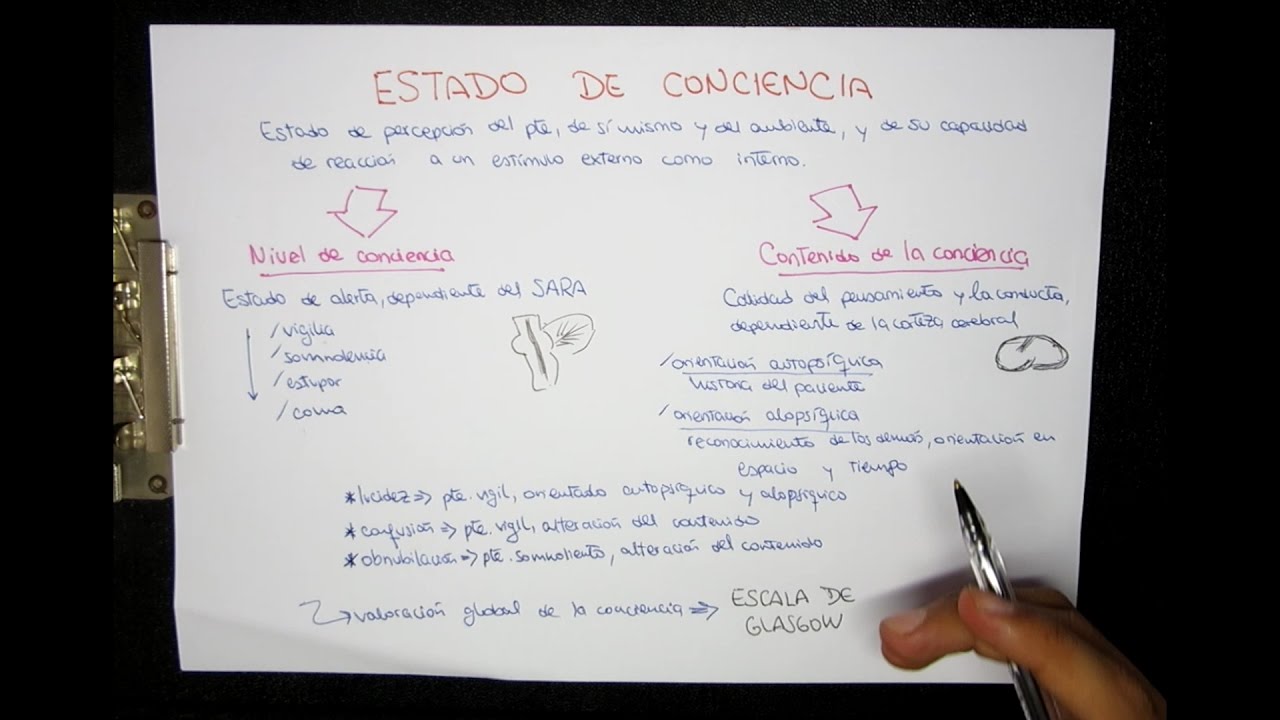 ESTADO DE CONCIENCIA
Estado de percepción del pte, de sí mismo y del ambiente, y de su capacidad
de reacción a un estímulo externo como interno.
Nivel de conciencia
Estado de alerta, dependiente del SARA
/vigilia
/somnolencia
/estupor
/coma
Contenido de la conciencia
Calidad del pensamiento y la conducta,
dependiente de la corteza cerebral
/orientación autopsíquica
historia del paciente
/orientación alopsíquica
reconocimiento de los demás, orientación en
espacio y tiempo
*lucidez => pte. vigil, orientado autopsíquico y alopsíquico
*confusión => pte. vigil, alteración del contenido
*obnubilación => pte. somnoliento, alteración del contenido
valoración global de la conciencia => ESCALA DE
GLASGOW